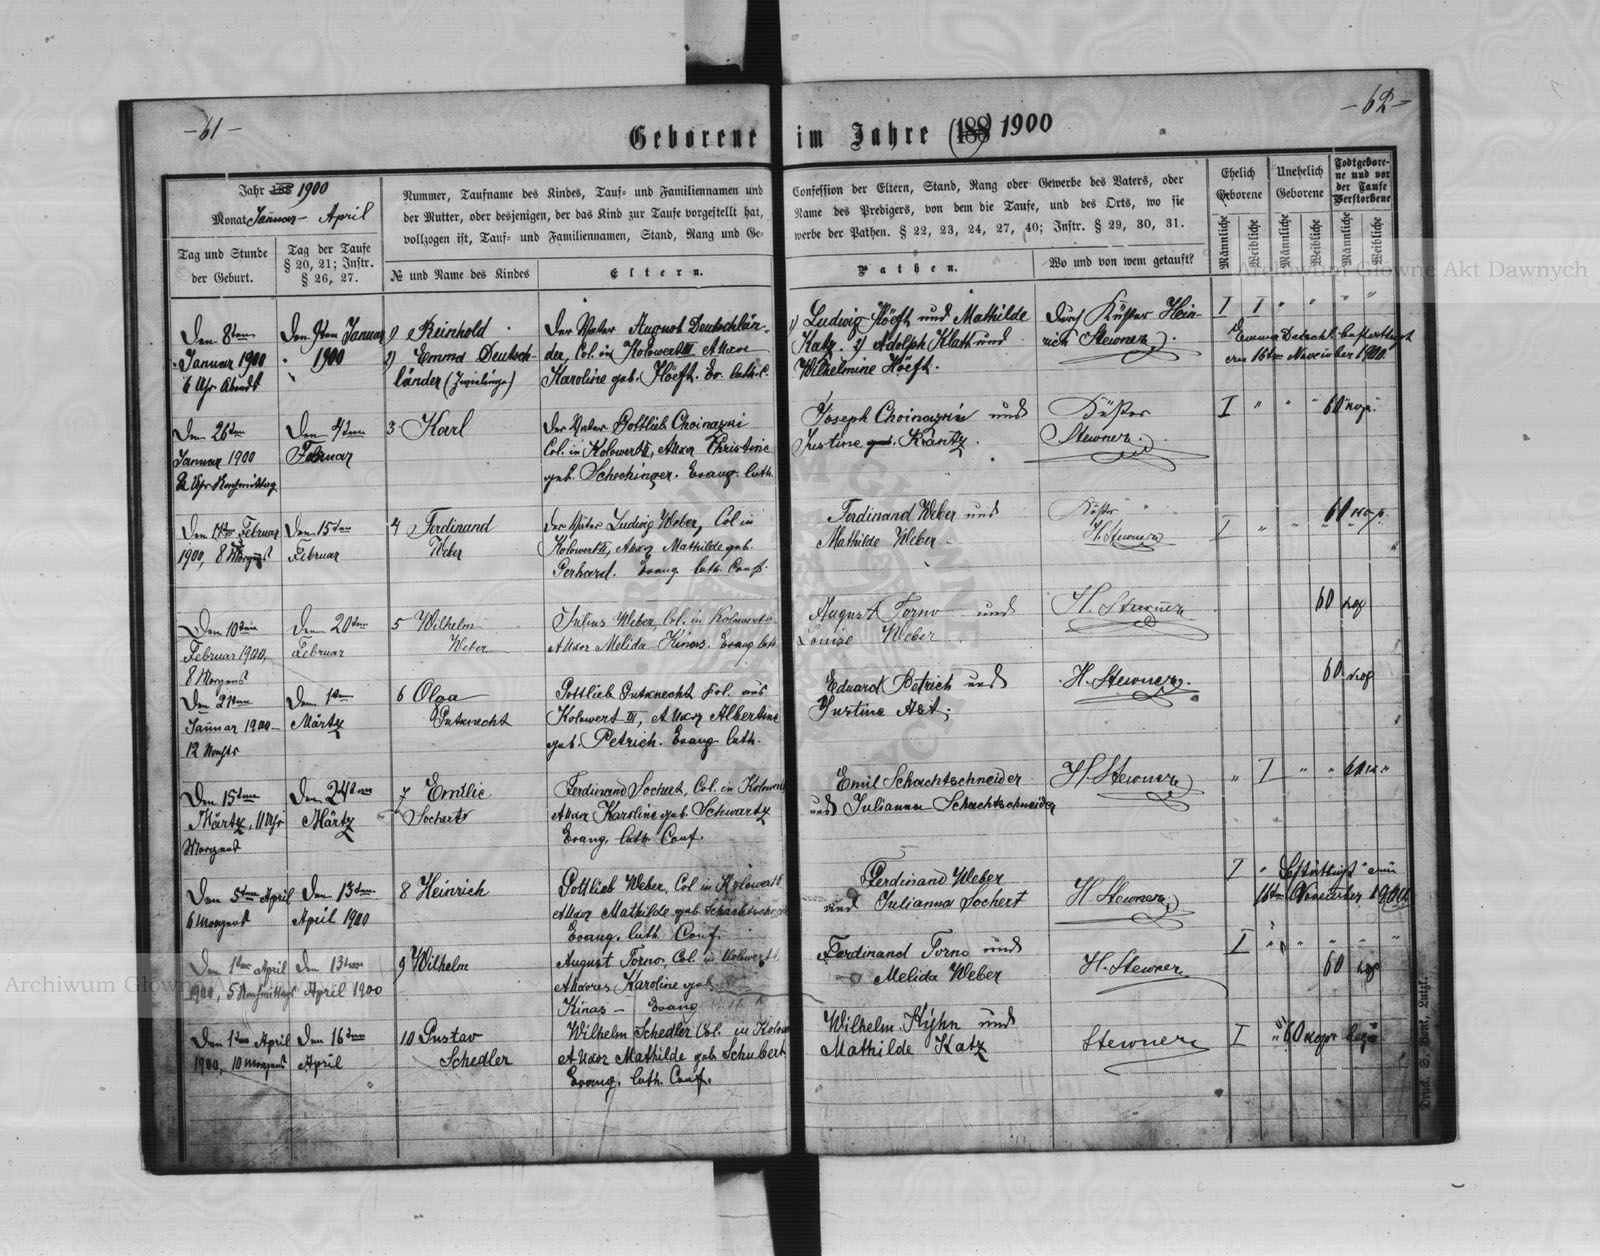 -61-
-62-
Geborene im Jahre (188 1900
Jahr 188 1900
Monat Januar - April
Nummer, Taufname des Kindes, Tauf- und Familiennamen und
der Mutter, oder desjenigen, der das Kind zur Taufe vorgestellt hat,
vollzogen ist, Tauf- und Familiennamen, Stand, Rang und Ge-
Confession der Eltern, Stand, Rang oder Gewerbe des Vaters, oder
Name des Predigers, von dem die Taufe, und des Orts, wo sie
werbe der Pathen. § 22, 23, 24, 27, 40; Instr. § 29, 30, 31.
Ehelich
Geborene
Unehelich
Geborene
Todtgebore-
ne und vor
der Taufe
Verstorbene
Tag und Stunde
der Geburt.
Tag der Taufe
§ 20, 21; Instr.
§ 26, 27.
№ und Name des Kindes
Eltern.
Pathen.
Wo und von wem getauft?
Männliche
Weibliche
Männliche
Weibliche
Männliche
Weibliche
Den 8ten
Januar 1900
6 Uhr Abends
Den 9ten Januar
1900
1) Reinhold
2) Emma Deutsch-
länder (Zwillinge)
Der Vater August Deutschlän-
der, Col. in Kolowert III, Uxor
Karoline geb. Höeft. Ev. luth. C.
1) Ludwig Höeft und Mathilde
Katz. 2) Adolph Klatt und
Wilhelmine Höeft.
Durch Küster Hein-
rich Stewner.
I I " " " "
16ten November 1900.
Den 26ten
Januar 1900
2 Uhr Nachmittag
Den 4ten
Februar
3 Karl
Der Vater Gottlieb Choinazki
Col. in Kolowert II, Uxor Christine
geb. Schechinger. Evang. luth.
Joseph Choinazki und
Justine geb. Krantz.
Küster
Stewner.
I " " " 60 kop.
Den 14ten Februar
1900, 8 Morgens
Den 15ten
Februar
4 Ferdinand
Weber
Der Vater Ludwig Weber, Col in
Kolowert II, Uxor Mathilde geb.
Gerhard. Evang. luth. Conf.
Ferdinand Weber und
Mathilde Weber
Küster
H. Stewner
60 kop.
I " " " " "
Den 10ten
Februar 1900,
8 Morgens
Den 20ten
Februar
5 Wilhelm
Weber
Julius Weber, Col. in Kolowert
Uxor Melida Kinas. Evang. luth.
August Torno und
Louise Weber
H. Stewner
60 kop
Den 21ten
Januar 1900
12 Nachts
Den 1ten
Märtz
6 Olga
Gutknecht
Gottlieb Gutknecht Col. aus
Kolowert III, Uxor Albertine
geb. Petrich. Evang. luth.
Eduard Petrich und
Justine Art.
H. Stewner.
60 kop
Den 15ten
Märtz, 11 Uhr
Morgens
Den 24ten
Märtz
7 Emilie
Sochert
Ferdinand Sochert, Col. in Kolowert
Uxor Karoline geb. Schwartz
Evang. luth. Conf.
Emil Schachtschneider
und Julianna Schachtschneider
H. Stewner
" I " " 60 k "
Den 5ten April
6 Morgens
Den 13ten
April 1900
8 Heinrich
Gottlieb Weber, Col in Kolowert
Uxor Mathilde geb. Schachtschn
Evang. luth. Conf.
Ferdinand Weber
und Julianna Sochert
H. Stewner
I "
16ten November 1900
Den 1ten April
1900, 5 Nachmittags
Den 13ten
April 1900
9 Wilhelm
August Torno, Col. in Kolowert
Uxor Karoline geb.
Kinas - Evang
Ferdinand Torno und
Melida Weber
H. Stewner
I " " " " "
60 kop
Den 1ten April
1900, 10 Morgens
Den 16ten
April
10 Gustav
Schedler
Wilhelm Schedler Col. in Kolow
Uxor Mathilde geb Schubert
Evang. luth. Conf.
Wilhelm Kühn und
Mathilde Katz
Stewner
I " 60 kop
Druck. S. Bont, Lutzk.
Archiwum Główne Akt Dawnych
Archiwum Główne